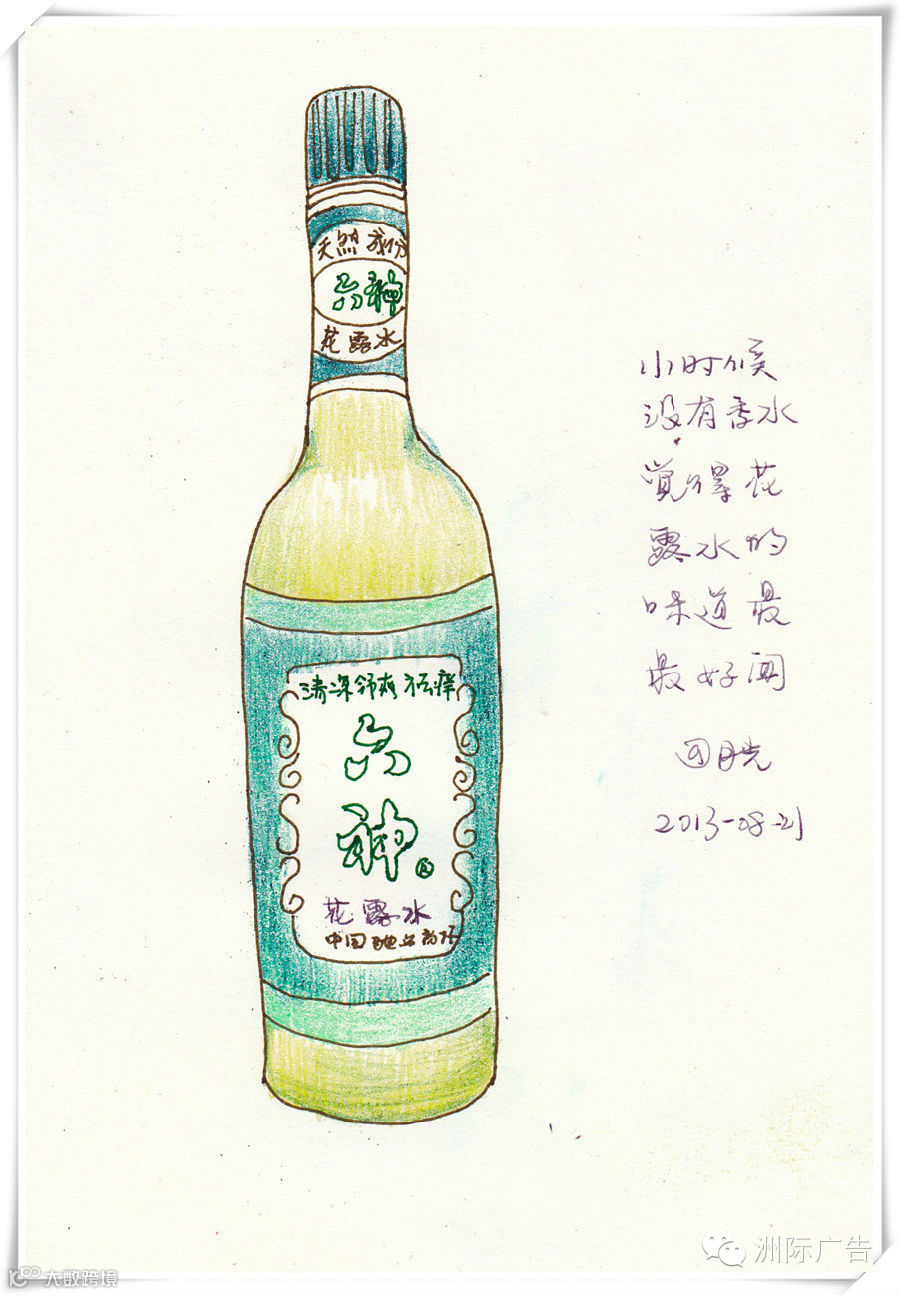 天然 成份
六神
花露水
清凉舒爽 祛痒
六
神®
花露水
中国驰名商标
小时候
没有香水
觉得花
露水的
味道最
最好闻
2013-08-21
洲际广告
大数跨境